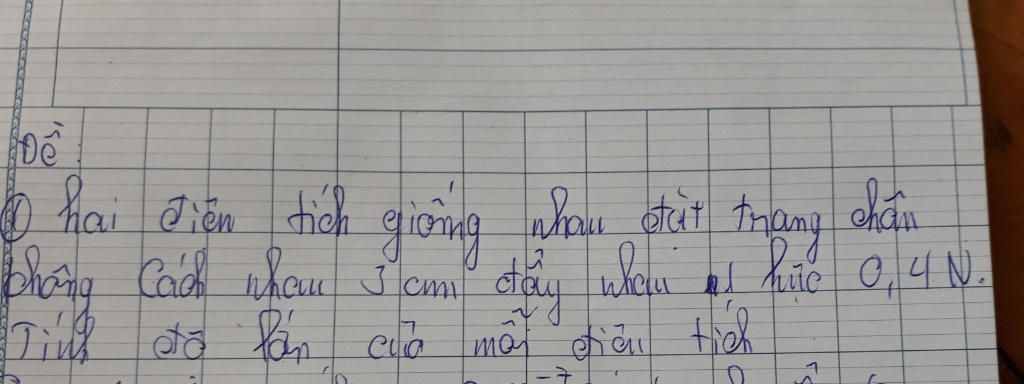 Đề:
① hai điện tích giống nhau đặt trong chân
không Cách nhau 3 cm đẩy nhau 1 lực 0,4 N.
Tính độ lớn của mỗi điện tích